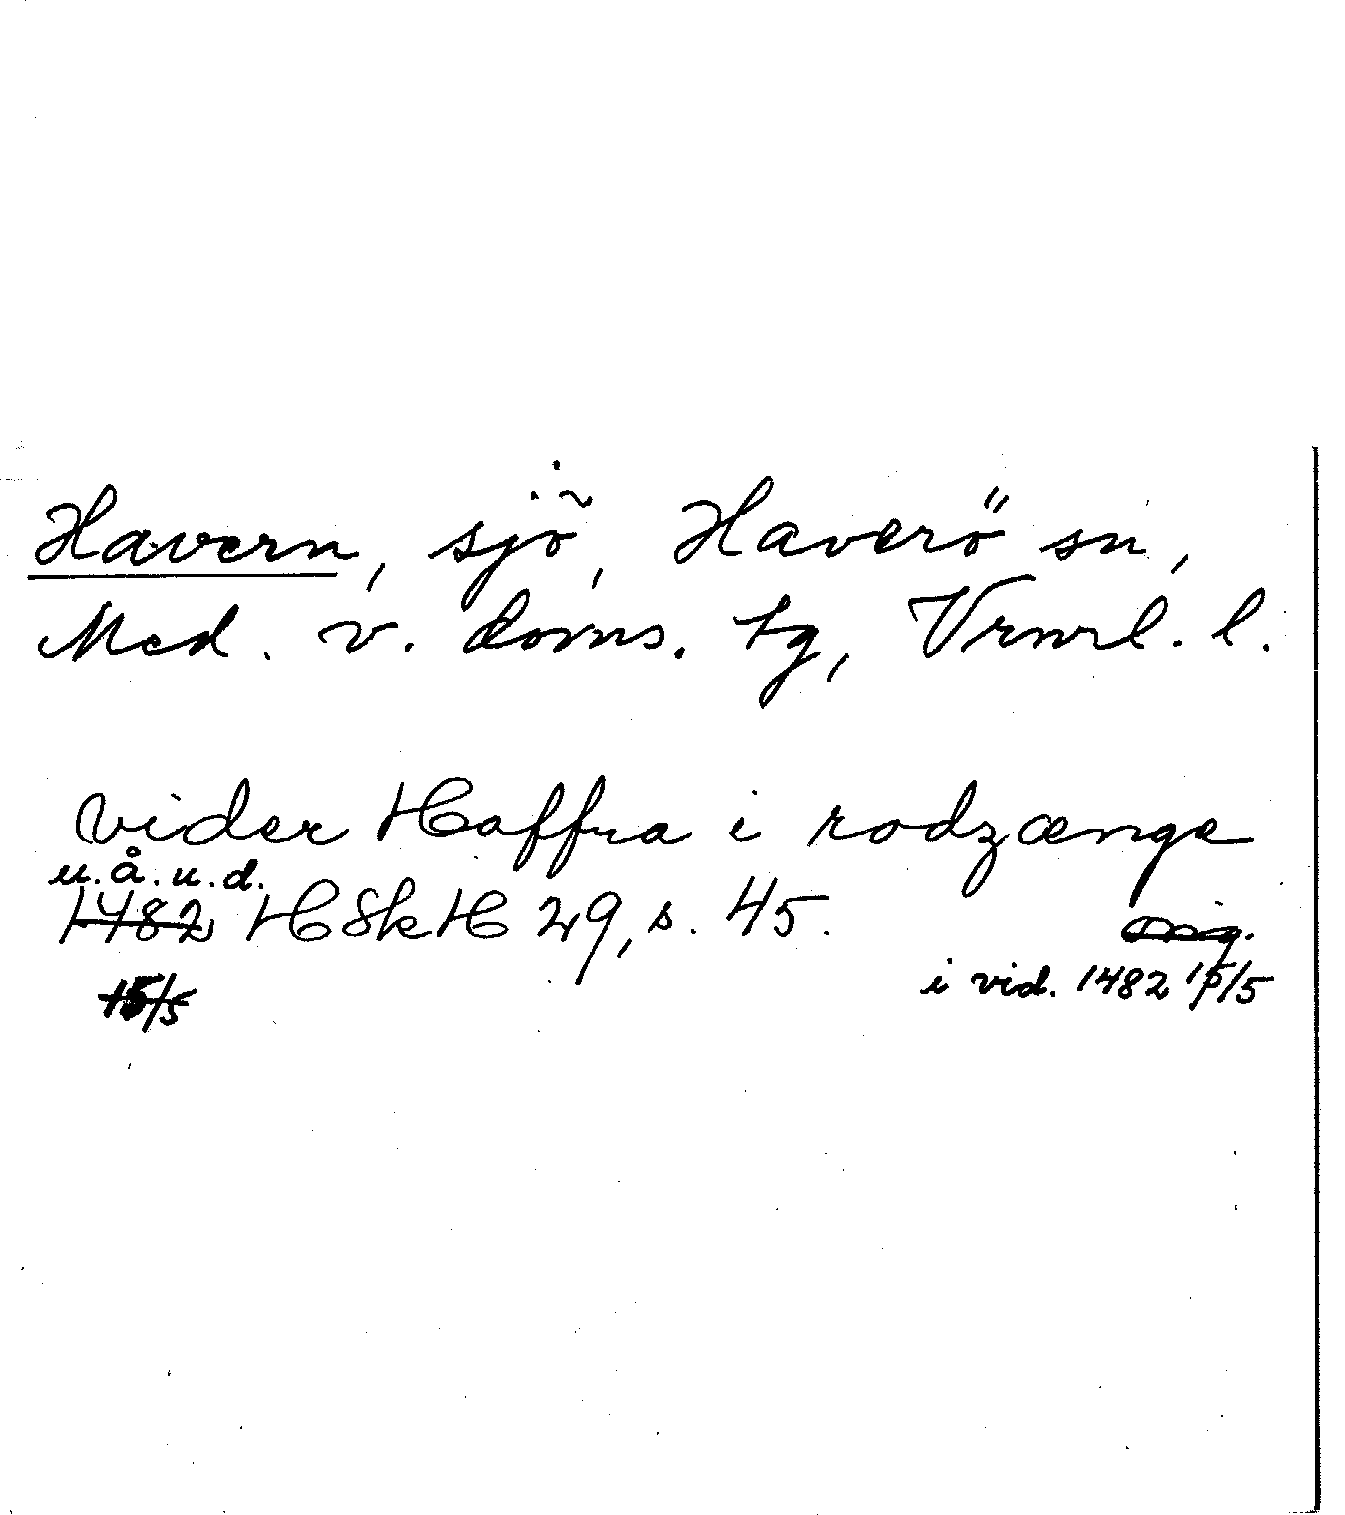 Havern, sjö, Haverö sn,
Med. v. doms. tg, Vrnrl. l.
vider Haffra i rodzænge
u.å.u.d.
1482 HSkH 29, s. 45. orig.
15/5 i vid. 1482 15/5